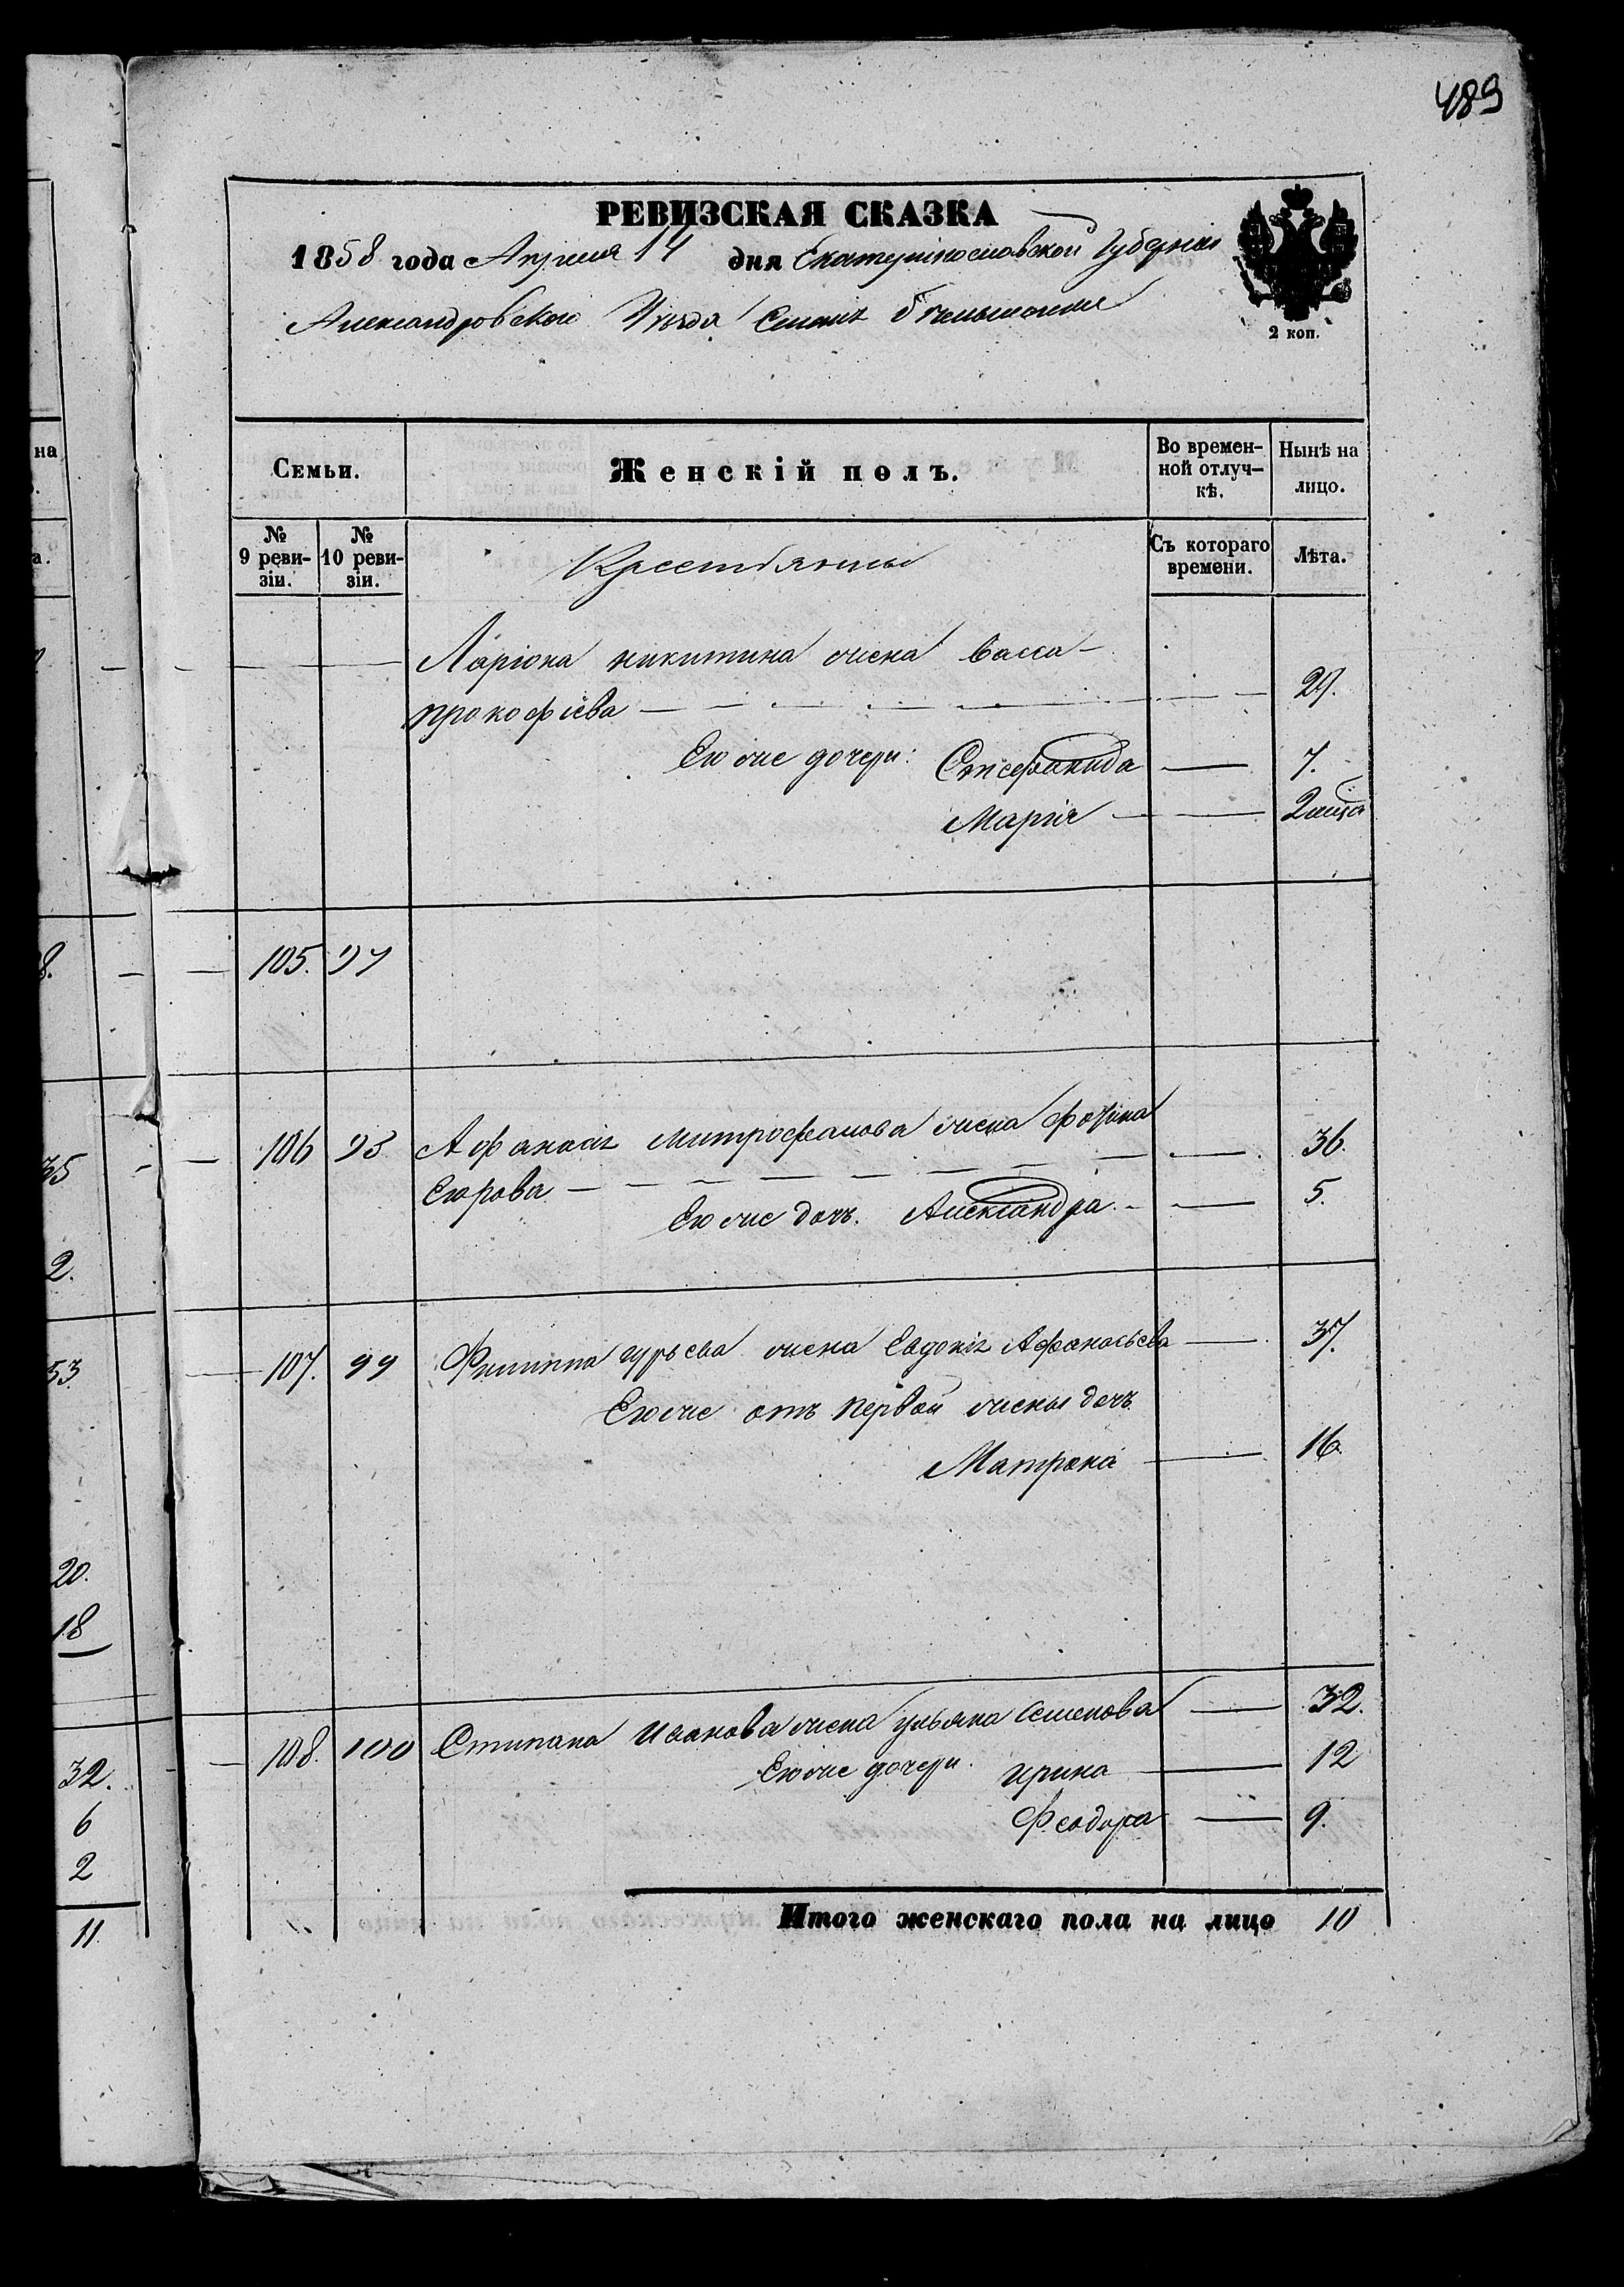 489
РЕВИЗСКАЯ СКАЗКА
1858 года Апреля 14 дня Екатеринославской Губернiи
Александровского Уезда Села
2 коп.
Семьи.
Женскiй полъ.
Во времен-
ной отлуч-
кѣ.
Нынѣ на
лицо.
№
9 реви-
зiи.
№
10 реви-
зiи.
Крестьянъ
Съ котораго
времени.
Лѣта.
Ларiона никитина жена Васса
прокофiева 29.
Его же дочери: Стефанида 7.
Марiя 2
105. 97
106 98 Афанасiя митрофанова жена фотина 36.
Егорова
Его же дочь Александра 5.
107. 99 Филиппа гурьева жена Евдокiя Афанасьева 37.
Его же отъ первой жены дочь
Матрена 16.
108. 100 Стипана Иванова жена ульяна Семенова 32.
Его же дочери ирина 12
Феодора 9.
Итого женскаго пола на лицо 10
на
а.
8.
35
2.
53.
20.
18
32.
6
2
11.